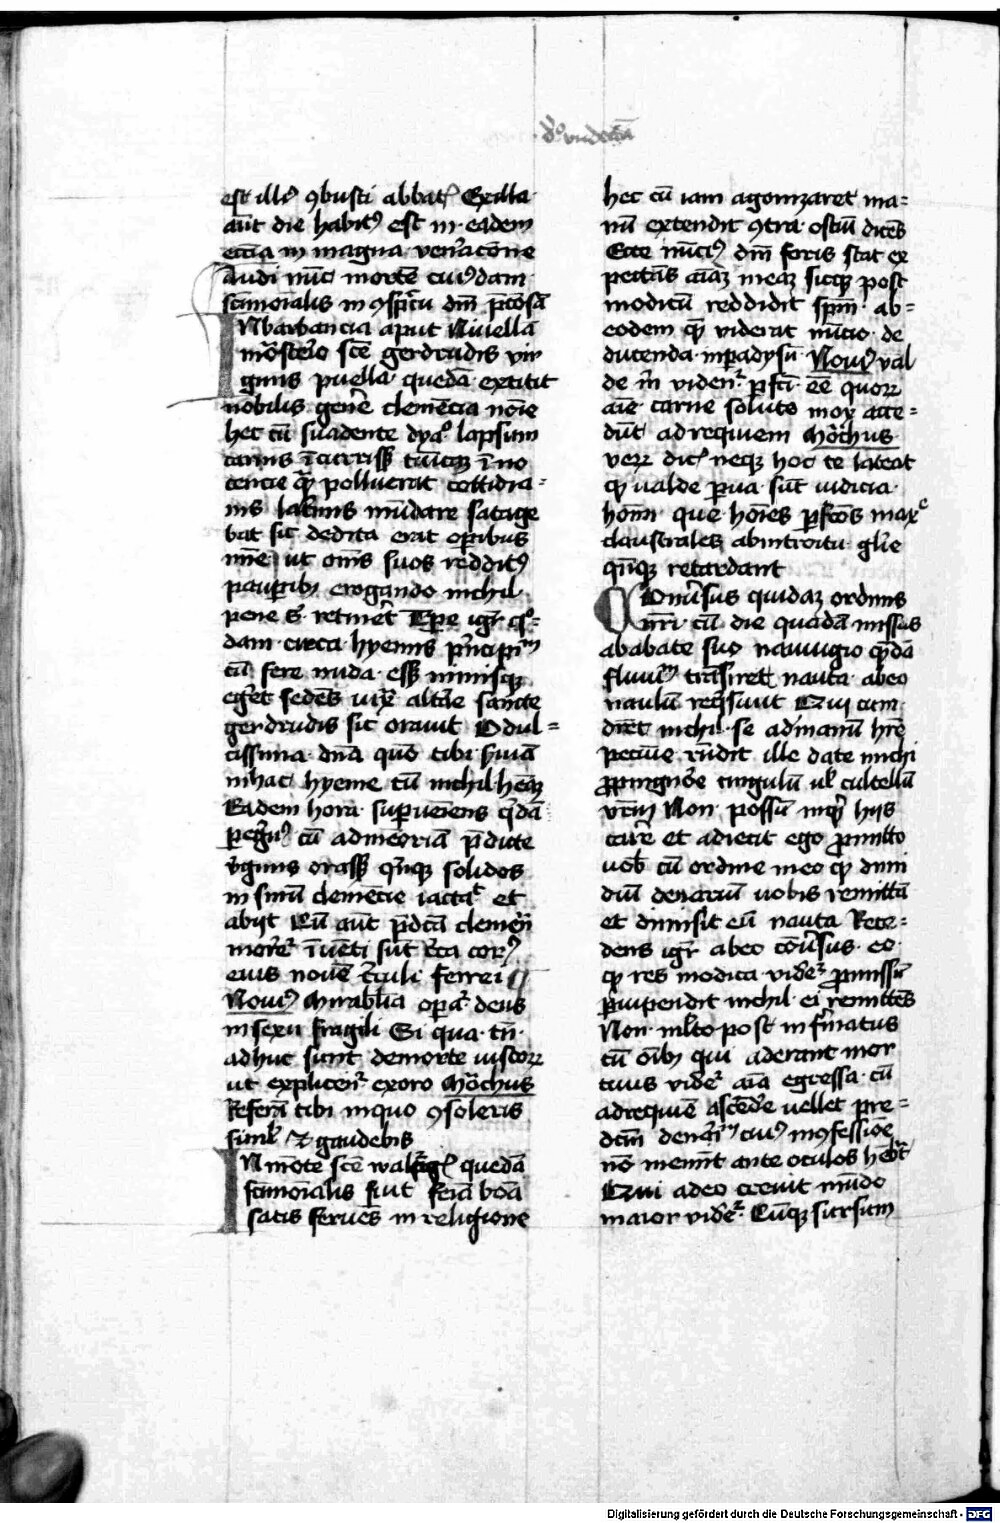 do vndecīa
est illiꝰ ꝯbusti abbatꝭ Ex illa
aūt die habitꝰ est in eadem
ecciā in magna venˀacōne
Audi nūc mortē cuiꝰdam
scīmoīalis in ꝯspc̄tu dn̄i p̄cōsā
IN barbancia aput Niuella
in mōstˀio scē gerdrudis vir
ginis puella quedā extitit
nobilis genˀe clemēcia noīe
hec cū suadente dyaᵒ lapsum
carnis īcurrissꝫ tūicāqꝫ īno
cencie qᵃ polluerat cottidia-
nis lacˀmis mūdare satage
bat sic dedita erat opibus
mīe ut om̄s suos redditꝰ
pauꝑibꝫ erogando nichil
pene sꝫ retinˀet Tꝑe igr̄ qᵒ-
dam circa hyemis pˀncipiᵐ
cū fere nuda essꝫ nimisqꝫ
egˀet sedēs iux̄ altāe sancte
gerdrudis sic orauit O dul-
cissima dn̄a quō tibi sˀuiā
in hac hyeme cū nichil heāꝫ
Eadem hora suꝑueniens qͥdā
peg̃nꝰ cū ad mēoriā p̄dicte
vˀginis orassꝫ qⁱnqꝫ solidos
in sinū clemēcie iactaᵗ et
abijt Cū aūt p̄dc̄ā clemēcī
morˀeᵗ īuēti sūt cˀca corꝰ
eius nouē cˀculi ferrei
Nouiꝰ Mirabˀlia opaᵗ deus
in sexu fragili Si qua tn̄
adhuc sunt de morte iustoꝝ
ut explicenᵗ exoro Mōchus
Referā tibi in quo ꝯsoleris
simˀl ⁊ gaudebis
IN mōte scē walpˀgꝭ quedā
scīmoīalis fuit feīa bōa
satis feruēs in religione
hec cū iam agonizaret ma-
nū extendit ꝯtra ostiū dicēs
Ecce nūciꝰ dn̄i foris stat ex
pectās aīaꝫ meaꝫ sicqꝫ post
modicū reddidit sp̄m ab
eodem quē viderat nūcio de
ducenda in padysū Nouiꝰ val
de m̄ videnᵗ ꝑfc̄i eē quoꝝ
aīe carne solute mox acce-
dūt ad requiem Mōchus
verꝝ dicˀ neqꝫ hoc te lateat
qꝫ ualde ꝑua sūt iudicia
hoīm que hoīes ꝑfcōs maxᵉ
claustrales ab introitu glˀie
qn̄qꝫ retardant
COnuˀsus quidaꝫ ordinis
nr̄i cū die quadā missus
ab abate suo nauigio qᵈdā
fluuiᵐ trāsiret nauta ab eo
naulū reqͥsiuit Qui cum
dicˀet nichil se ad manū hr̄e
pecūie rn̄dit ille date michi
ꝓ pingnˀoe cingulū ul̄ cultellū
vr̄m Non possū inqͥt hijs
carˀe et adiecit ego ꝓmitto
uob̄ cū ordine meo qꝫ dimi
diū denariū uobis remittā
et dimisit eū nauta Rece-
dens igr̄ ab eo cōuˀsus eo
qꝫ res modica videᵗ ꝓmissū
ꝑuipendit nichil ei remittēs
Non ml̄to post infˀmatus
cū oībꝫ qui aderant mor
tuus videᵗ aīa egressa cū
ad requiē ascēdˀe uellet pre-
dcm̄ denˀiᵐ cuiꝰ in ꝯfessiōe
nō meminit ante oculos hēbat
Qui adeo creuit mūdo
maior videᵗ Cūqꝫ sursum
Digitalisierung gefördert durch die Deutsche Forschungsgemeinschaft - DFG